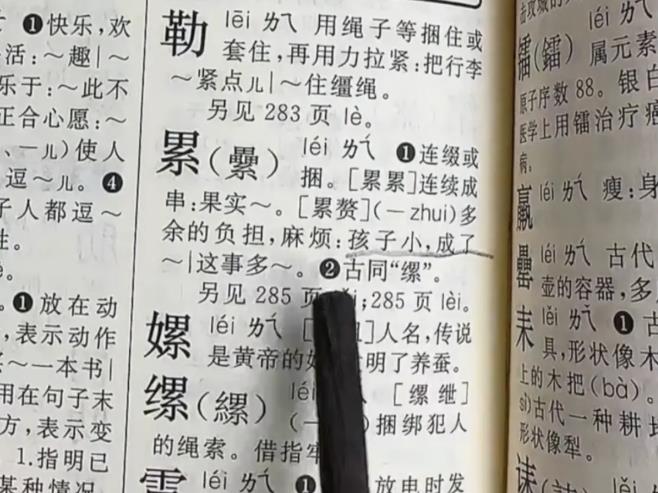 ❶快乐,欢
活:~趣|~
乐于:~此不
正合心愿:~
、一儿)使人
逗~儿。❹
子人都逗~
性。
❶放在动
,表示动作
~一本书|
用在句子末
方,表示变
1.指明已
某种情况
勒 lēi ㄌㄟ 用绳子等捆住或
套住,再用力拉紧:把行李
~紧点儿|~住缰绳。
另见 283 页 lè。
累(纍) léi ㄌㄟˊ ❶连缀或
捆。[累累]连续成
串:果实~。[累赘](-zhui)多
余的负担,麻烦:孩子小,成了
~|这事多~。❷古同“缧”。
另见 285 页 ;285 页 lèi。
嫘 léi ㄌㄟˊ [ ]人名,传说
是黄帝的 明了养蚕。
缧(縲) léi [缧绁]
( )捆绑犯人
的绳索。借指牢
雷 léi ㄌㄟˊ ❶ 放电时发
léi ㄌㄟˊ
镭(鐳) 属元素
原子序数 88。银白
医学上用镭治疗癌
病。
羸 léi ㄌㄟˊ 瘦:身
罍 léi ㄌㄟˊ 古代
壶的容器,多
耒 lěi ㄌㄟˇ ❶古
具,形状像木
上的木把(bà)。
sì)古代一种耕地
形状像犁。
诔(誄) lěi ㄌㄟˇ